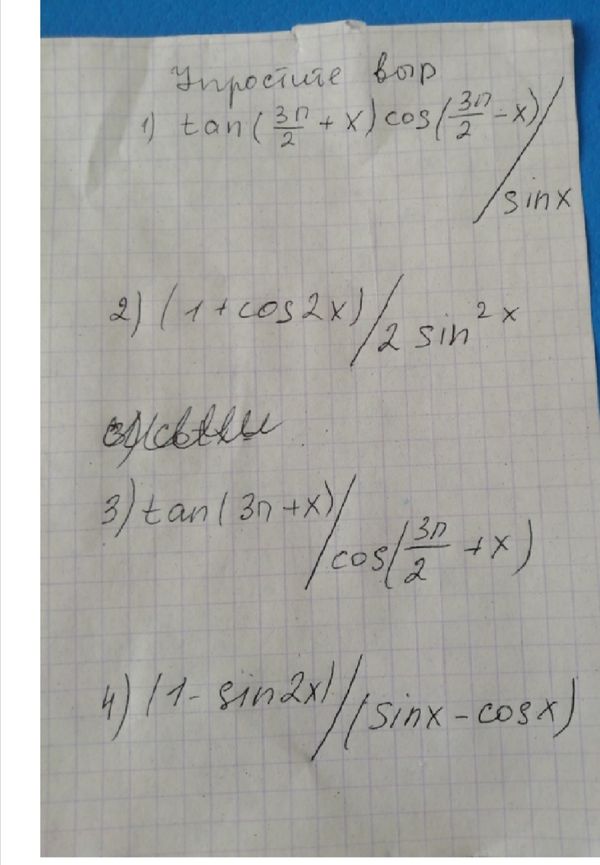 Упростите выр
1) tan(3п/2 + x) cos(3п/2 - x) / sinx
2) (1 + cos2x) / 2 sin²x
3) tan(3п + x) / cos(3п/2 + x)
4) (1 - sin2x) / (sinx - cosx)